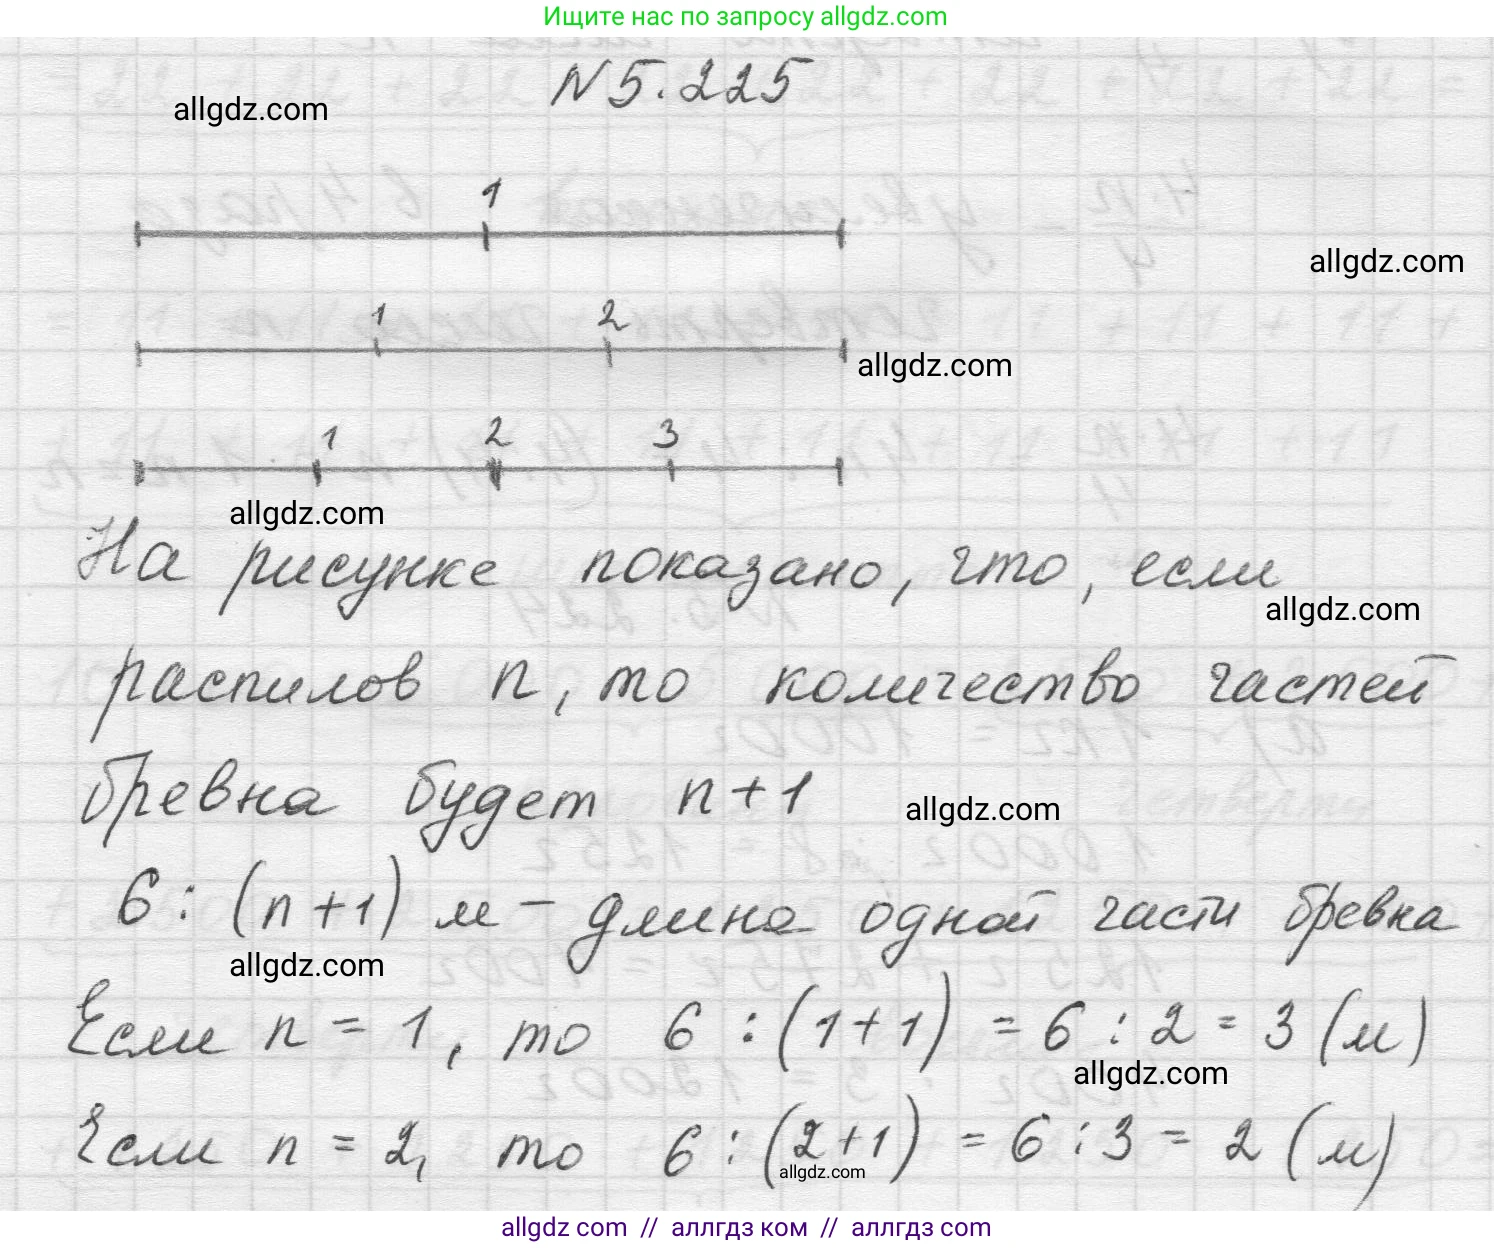 Ищите нас по запросу allgdz.com
N 5.225
allgdz.com
1
allgdz.com
1 2
allgdz.com
1 2 3
allgdz.com
На рисунке показано, что, если
allgdz.com
распилов n, то количество частей
бревна будет n+1
allgdz.com
6 : (n+1) м – длина одной части бревна
allgdz.com
Если n = 1, то 6 : (1+1) = 6 : 2 = 3 (м)
allgdz.com
Если n = 2, то 6 : (2+1) = 6 : 3 = 2 (м)
allgdz.com
allgdz com // аллгдз ком // аллгдз com